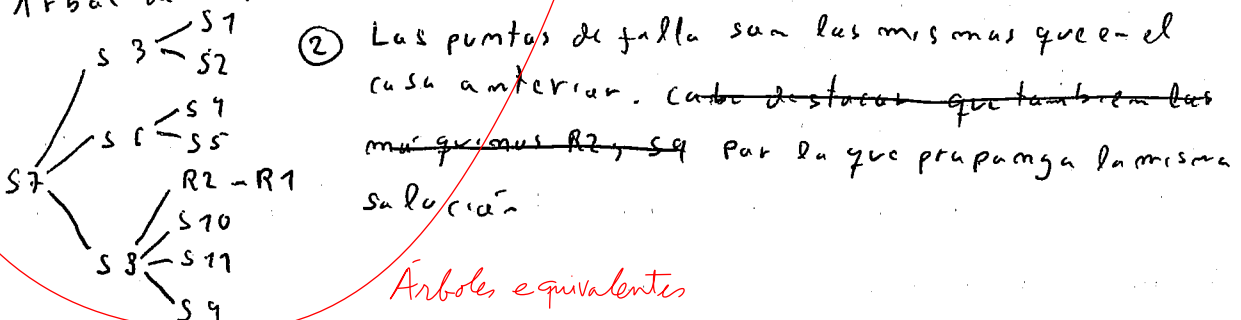 S1
S3
S2
S4
S6
S5
S7
R2 - R1
S10
S8 S11
S9
② Los puntos de falla son los mismos que en el
caso anterior. Cabe destacar que también las
máquinas R2, S9 Por lo que propongo la misma
solución
Árboles equivalentes